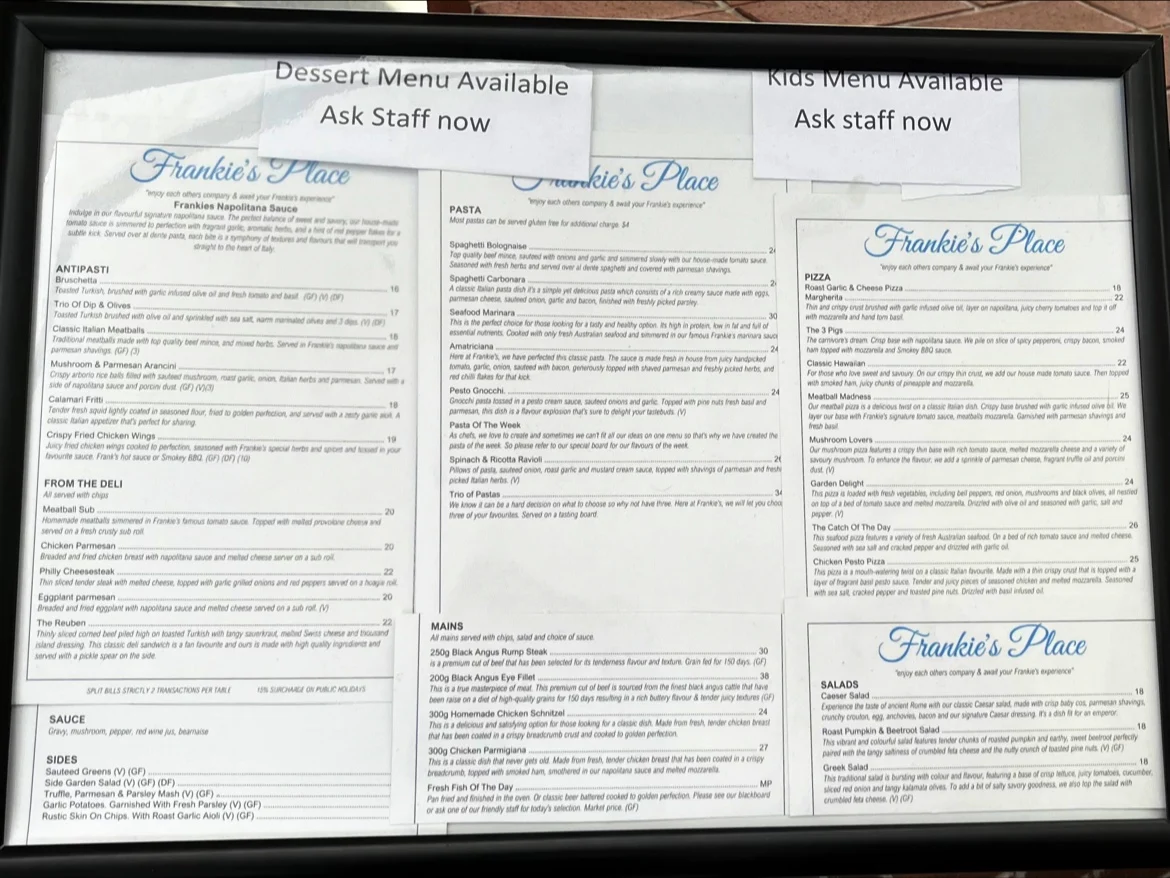 Dessert Menu Available
Ask Staff now
Kids Menu Available
Ask staff now
Frankie's Place
"enjoy each others company & await your Frankie's experience"
Frankies Napolitana Sauce
Indulge in our flavourful signature napolitana sauce. The perfect balance of sweet and savory, our house-made
tomato sauce is simmered to perfection with fragrant garlic, aromatic herbs, and a hint of red pepper flakes for a
subtle kick. Served over al dente pasta, each bite is a symphony of textures and flavours that will transport you
straight to the heart of Italy.
ANTIPASTI
Bruschetta 16
Toasted Turkish, brushed with garlic infused olive oil and fresh tomato and basil. (GF) (V) (DF)
Trio Of Dip & Olives 17
Toasted Turkish brushed with olive oil and sprinkled with sea salt, warm marinated olives and 3 dips. (V) (DF)
Classic Italian Meatballs 16
Traditional meatballs made with top quality beef mince, and mixed herbs. Served in Frankie's napolitana sauce and
parmesan shavings. (GF) (3)
Mushroom & Parmesan Arancini 17
Crispy arborio rice balls filled with sauteed mushroom, roast garlic, onion, Italian herbs and parmesan. Served with a
side of napolitana sauce and porcini dust. (GF) (V)(3)
Calamari Fritti 18
Tender fresh squid lightly coated in seasoned flour, fried to golden perfection, and served with a zesty garlic aioli. A
classic Italian appetizer that's perfect for sharing.
Crispy Fried Chicken Wings 19
Juicy fried chicken wings cooked to perfection, seasoned with Frankie's special herbs and spices and tossed in your
favourite sauce. Frank's hot sauce or Smokey BBQ. (GF) (DF) (10)
FROM THE DELI
All served with chips
Meatball Sub 20
Homemade meatballs simmered in Frankie's famous tomato sauce. Topped with melted provolone cheese and
served on a fresh crusty sub roll.
Chicken Parmesan 20
Breaded and fried chicken breast with napolitana sauce and melted cheese server on a sub roll.
Philly Cheesesteak 22
Thin sliced tender steak with melted cheese, topped with garlic grilled onions and red peppers served on a hoagie roll.
Eggplant parmesan 20
Breaded and fried eggplant with napolitana sauce and melted cheese served on a sub roll. (V)
The Reuben 22
Thinly sliced corned beef piled high on toasted Turkish with tangy sauerkraut, melted Swiss cheese and thousand
island dressing. This classic deli sandwich is a fan favourite and ours is made with high quality ingredients and
served with a pickle spear on the side.
SPLIT BILLS STRICTLY 2 TRANSACTIONS PER TABLE 15% SURCHARGE ON PUBLIC HOLIDAYS
SAUCE
Gravy, mushroom, pepper, red wine jus, bearnaise
SIDES
Sauteed Greens (V) (GF)
Side Garden Salad (V) (GF) (DF)
Truffle, Parmesan & Parsley Mash (V) (GF)
Garlic Potatoes. Garnished With Fresh Parsley (V) (GF)
Rustic Skin On Chips. With Roast Garlic Aioli (V) (GF)
Frankie's Place
"enjoy each others company & await your Frankie's experience"
PASTA
Most pastas can be served gluten free for additional charge. $4
Spaghetti Bolognaise
Top quality beef mince, sauteed with onions and garlic and simmered slowly with our house-made tomato sauce.
Seasoned with fresh herbs and served over al dente spaghetti and covered with parmesan shavings.
Spaghetti Carbonara
A classic Italian pasta dish it's a simple yet delicious pasta which consists of a rich creamy sauce made with eggs,
parmesan cheese, sauteed onion, garlic and bacon, finished with freshly picked parsley.
Seafood Marinara 30
This is the perfect choice for those looking for a tasty and healthy option. Its high in protein, low in fat and full of
essential nutrients. Cooked with only fresh Australian seafood and simmered in our famous Frankie's marinara sauce
Amatriciana 24
Here at Frankie's, we have perfected this classic pasta. The sauce is made fresh in house from juicy handpicked
tomato, garlic, onion, sauteed with bacon, generously topped with shaved parmesan and freshly picked herbs, and
red chilli flakes for that kick.
Pesto Gnocchi 24
Gnocchi pasta tossed in a pesto cream sauce, sauteed onions and garlic. Topped with pine nuts fresh basil and
parmesan, this dish is a flavour explosion that's sure to delight your tastebuds. (V)
Pasta Of The Week
As chefs, we love to create and sometimes we can't fit all our ideas on one menu so that's why we have created the
pasta of the week. So please refer to our special board for our flavours of the week.
Spinach & Ricotta Ravioli
Pillows of pasta, sauteed onion, roast garlic and mustard cream sauce, topped with shavings of parmesan and fresh
picked Italian herbs. (V)
Trio of Pastas
We know it can be a hard decision on what to choose so why not have three. Here at Frankie's, we will let you choo
three of your favourites. Served on a tasting board.
MAINS
All mains served with chips, salad and choice of sauce.
250g Black Angus Rump Steak 30
is a premium cut of beef that has been selected for its tenderness flavour and texture. Grain fed for 150 days. (GF)
200g Black Angus Eye Fillet 38
This is a true masterpiece of meat. This premium cut of beef is sourced from the finest black angus cattle that have
been raise on a diet of high-quality grains for 150 days resulting in a rich buttery flavour & tender juicy textures (GF)
300g Homemade Chicken Schnitzel 24
This is a delicious and satisfying option for those looking for a classic dish. Made from fresh, tender chicken breast
that has been coated in a crispy breadcrumb crust and cooked to golden perfection.
300g Chicken Parmigiana 27
This is a classic dish that never gets old. Made from fresh, tender chicken breast that has been coated in a crispy
breadcrumb, topped with smoked ham, smothered in our napolitana sauce and melted mozzarella.
Fresh Fish Of The Day MP
Pan fried and finished in the oven. Or classic beer battered cooked to golden perfection. Please see our blackboard
or ask one of our friendly staff for today's selection. Market price. (GF)
Frankie's Place
"enjoy each others company & await your Frankie's experience"
PIZZA
Roast Garlic & Cheese Pizza 18
Margherita 22
Thin and crispy crust brushed with garlic infused olive oil, layer on napolitana, juicy cherry tomatoes and top it off
with mozzarella and hand torn basil.
The 3 Pigs 24
The carnivore's dream. Crisp base with napolitana sauce. We pile on slice of spicy pepperoni, crispy bacon, smoked
ham topped with mozzarella and Smokey BBQ sauce.
Classic Hawaiian 22
For those who love sweet and savoury. On our crispy thin crust, we add our house made tomato sauce. Then topped
with smoked ham, juicy chunks of pineapple and mozzarella.
Meatball Madness 25
Our meatball pizza is a delicious twist on a classic Italian dish. Crispy base brushed with garlic infused olive oil. We
layer our base with Frankie's signature tomato sauce, meatballs mozzarella. Garnished with parmesan shavings and
fresh basil.
Mushroom Lovers 24
Our mushroom pizza features a crispy thin base with rich tomato sauce, melted mozzarella cheese and a variety of
savoury mushroom. To enhance the flavour, we add a sprinkle of parmesan cheese, fragrant truffle oil and porcini
dust. (V)
Garden Delight 24
This pizza is loaded with fresh vegetables, including bell peppers, red onion, mushrooms and black olives, all nestled
on top of a bed of tomato sauce and melted mozzarella. Drizzled with olive oil and seasoned with garlic, salt and
pepper. (V)
The Catch Of The Day 26
This seafood pizza features a variety of fresh Australian seafood. On a bed of rich tomato sauce and melted cheese.
Seasoned with sea salt and cracked pepper and drizzled with garlic oil.
Chicken Pesto Pizza 25
This pizza is a mouth-watering twist on a classic Italian favourite. Made with a thin crispy crust that is topped with a
layer of fragrant basil pesto sauce. Tender and juicy pieces of seasoned chicken and melted mozzarella. Seasoned
with sea salt, cracked pepper and toasted pine nuts. Drizzled with basil infused oil.
Frankie's Place
"enjoy each others company & await your Frankie's experience"
SALADS
Caesar Salad 18
Experience the taste of ancient Rome with our classic Caesar salad, made with crisp baby cos, parmesan shavings,
crunchy crouton, egg, anchovies, bacon and our signature Caesar dressing. It's a dish fit for an emperor.
Roast Pumpkin & Beetroot Salad 18
This vibrant and colourful salad features tender chunks of roasted pumpkin and earthy, sweet beetroot perfectly
paired with the tangy saltiness of crumbled feta cheese and the nutty crunch of toasted pine nuts. (V) (GF)
Greek Salad 18
This traditional salad is bursting with colour and flavour, featuring a base of crisp lettuce, juicy tomatoes, cucumber,
sliced red onion and tangy kalamata olives. To add a bit of salty savory goodness, we also top the salad with
crumbled feta cheese. (V) (GF)